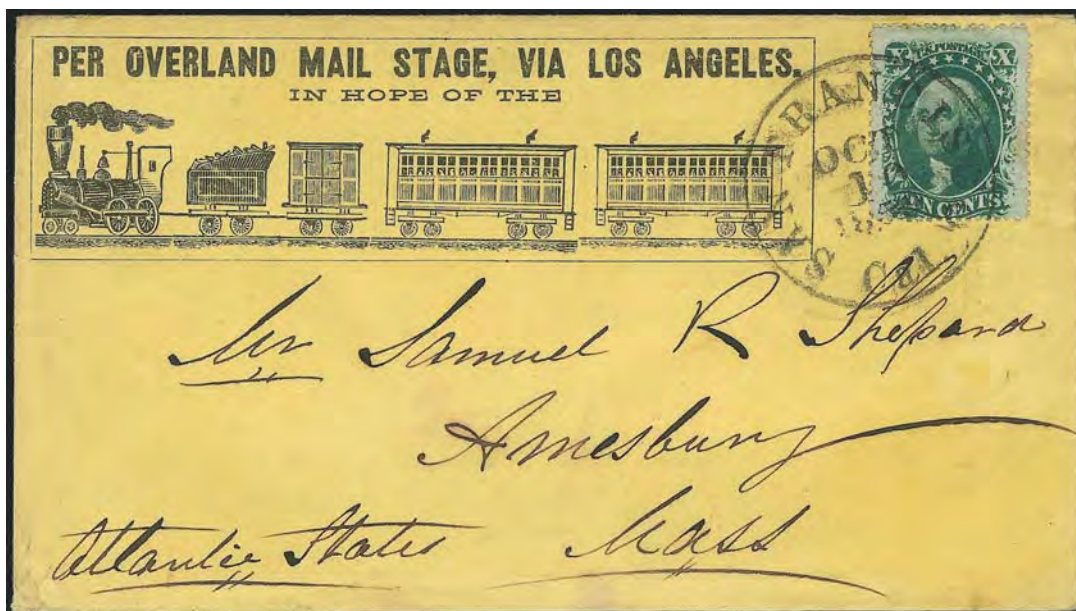 PER OVERLAND MAIL STAGE, VIA LOS ANGELES.
IN HOPE OF THE
X U.S. POSTAGE X
TEN CENTS
SAN FRANCISCO
OCT
Cal
Mr Samuel R Shepard
Amesbury
Mass
Atlantic States